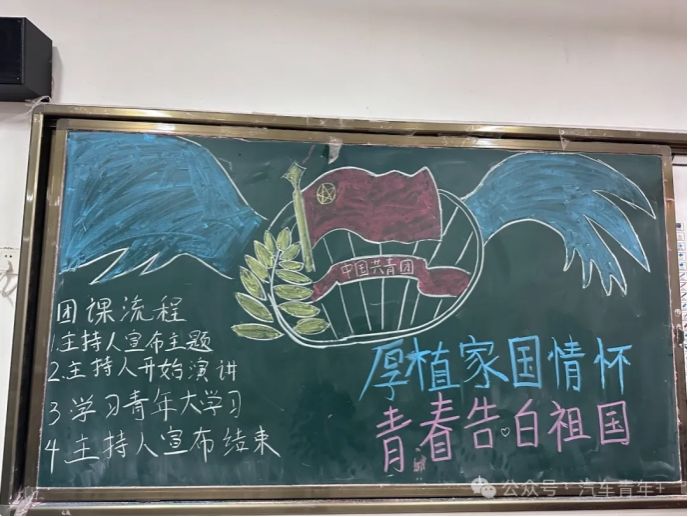 中国共青团
团课流程
1.主持人宣布主题
2.主持人开始演讲
3.学习青年大学习
4主持人宣布结束
厚植家国情怀
青春告白祖国
公众号·汽车青年+